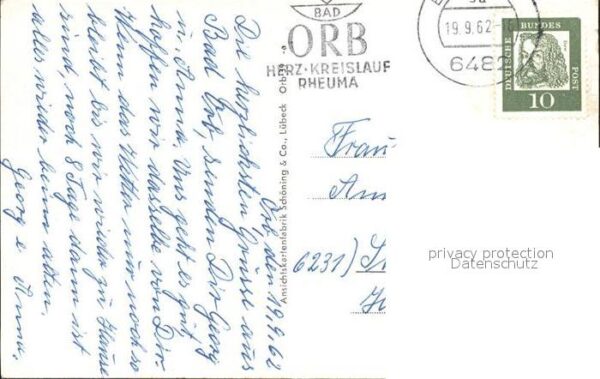 BAD
ORB
HERZ-KREISLAUF
RHEUMA
19.9.62
6482
DEUTSCHE
BUNDES
POST
10
Ansichtskartenfabrik Schöning & Co., Lübeck
Orb, den 19.9.62
Die herzlichsten Grüsse aus
Bad Orb, senden Dir Georg
u. Anna. Uns geht es gut,
hoffen wir dasselbe von Dir.
Wenn das Wetter nur noch so
bleibt bis wir wieder zu Hause
sind, noch 8 Tage dann ist
alles wieder beim alten.
Georg u Anna.
Frau
6231)
privacy protection
Datenschutz